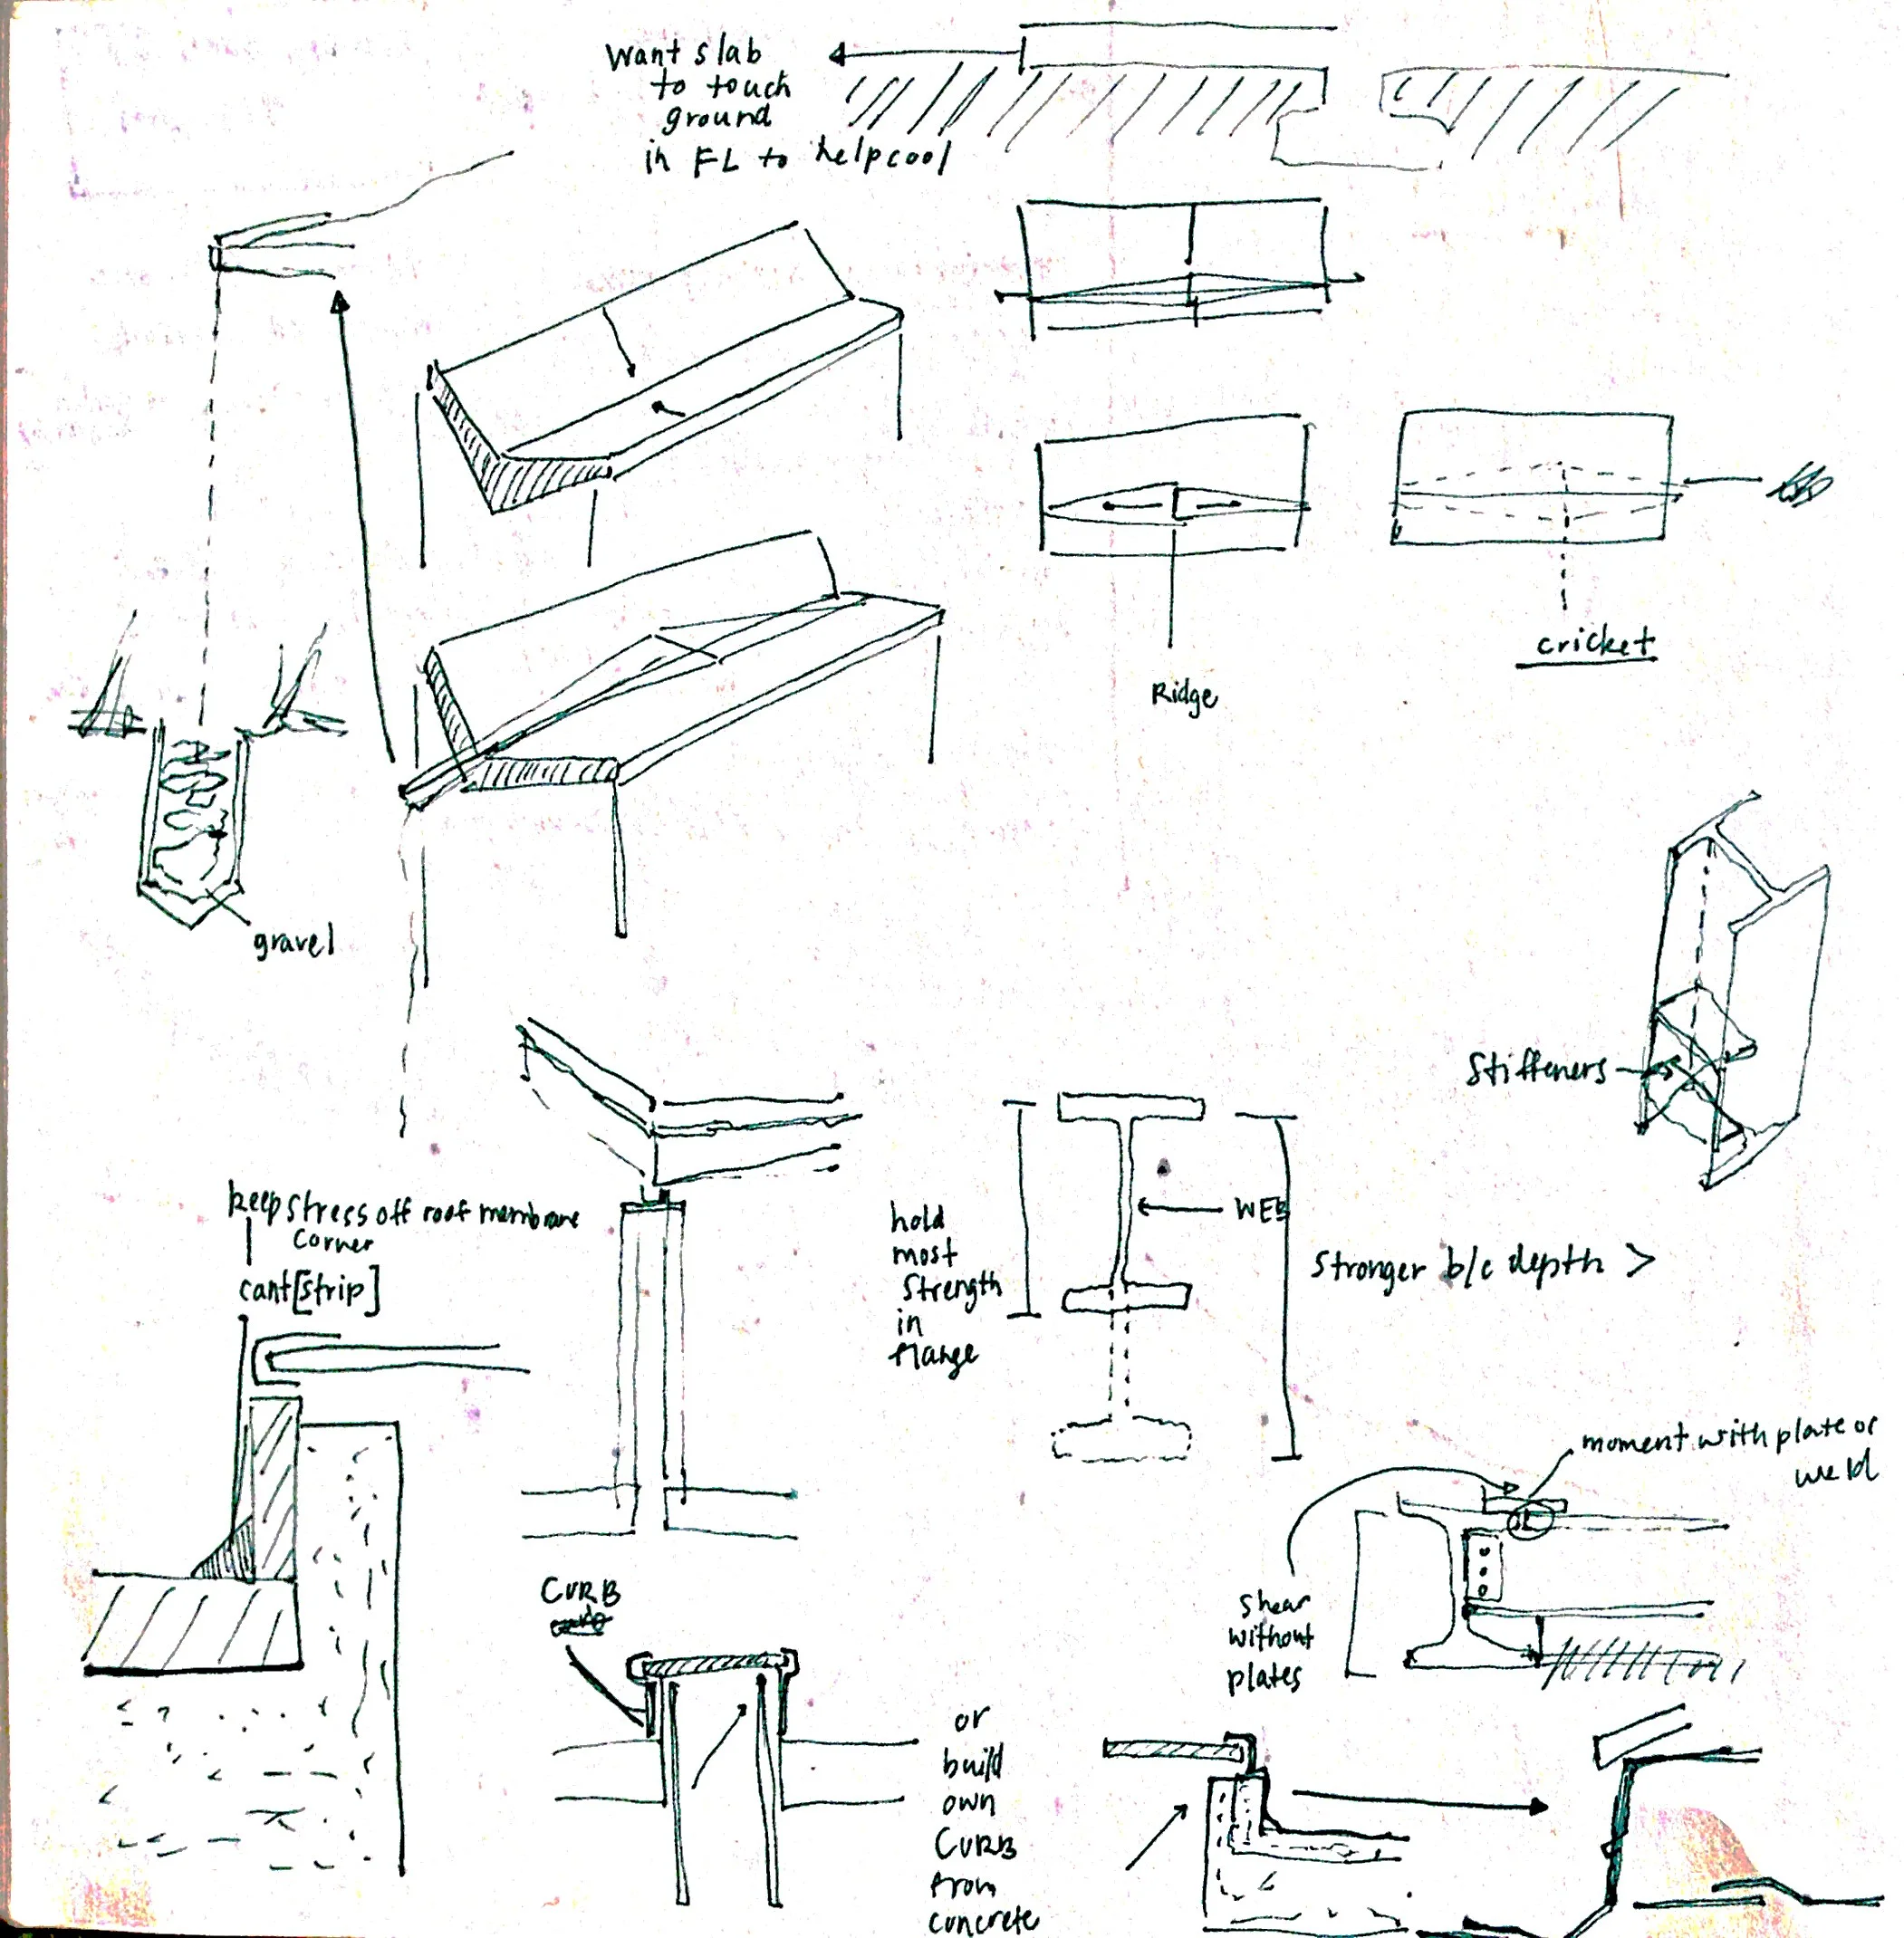 Want slab
to touch
ground
in FL to help cool
cricket
Ridge
gravel
Stiffeners
keep stress off roof membrane
corner
cant[strip]
hold
most
strength
in
flange
WEB
Stronger b/c depth >
moment with plate or
weld
shear
without
plates
CURB
or
build
own
CURB
from
concrete